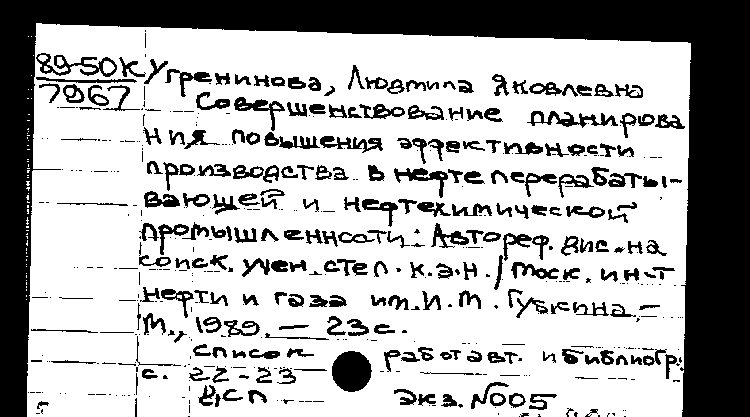 89-50К Угренинова, Людмила Яковлевна
7967 Совершенствование планирова
ния повышения эффективности
производства в нефтеперерабаты-
вающей и нефтехимической
промышленности: Автореф. дис. на
соиск. учен. степ. к.э.н. / Моск. ин-т
нефти и газа им. И. М. Губкина. -
М., 1989. — 23 с.
Список работ авт. и библиогр.:
с. 22-23
экз. №005